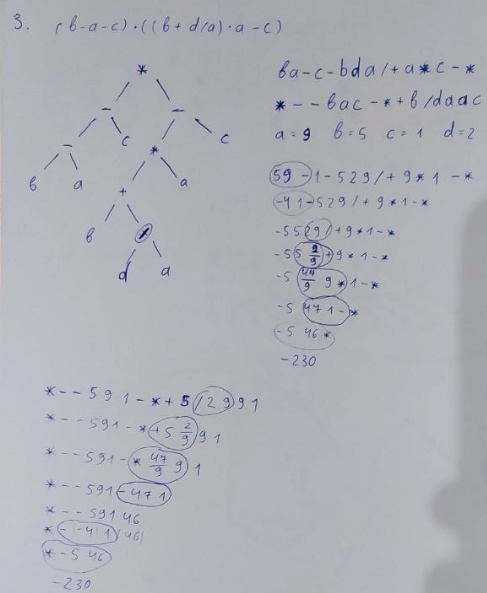 3. (b-a-c)·((b+d/a)·a-c)
*
- -
- c * c
b a + a
b /
d a
ba-c-bda/+a*c-*
*--bac-*+b/daac
a=9 b=5 c=1 d=2
59-1-529/+9*1-*
-41-529/+9*1-*
-5529/+9*1-*
-55 2/9 +9*1-*
-5 47/9 9*1-*
-5 471-*
-5 46*
-230
*--591-*+5/2991
*--591-*+5 2/9 91
*--591-* 47/9 9 1
*--591-471
*--59146
*--41 46
*-546
-230